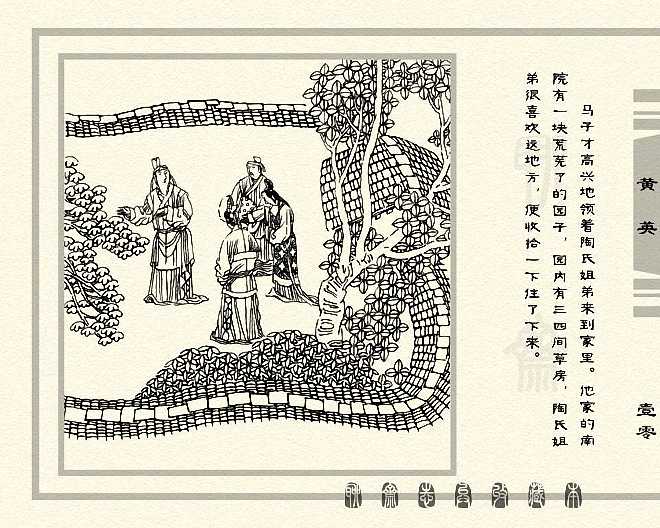 马子才高兴地领着陶氏姐弟来到家里。他家的南
院有一块荒芜了的园子，园内有三四间草房，陶氏姐
弟很喜欢这地方，便收拾一下住了下来。
黄英
壹零